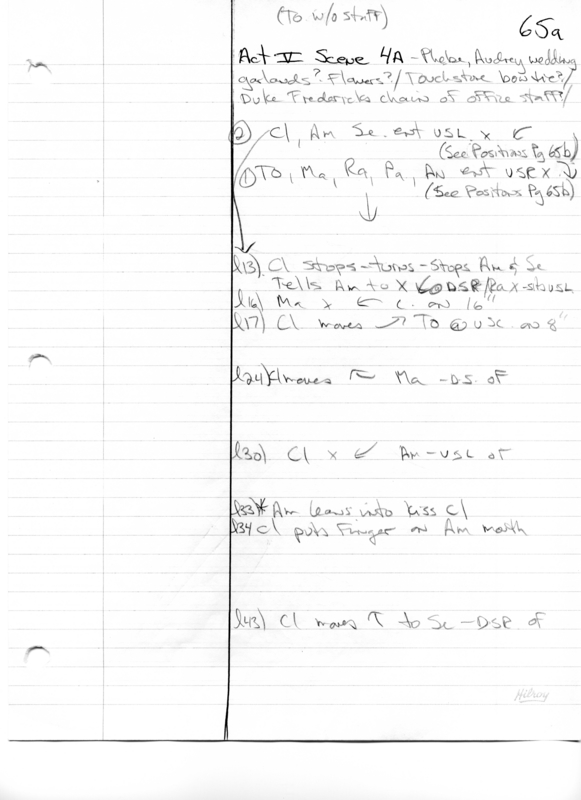 (To w/o staff)
65a
Act V Scene 4A - Phebe, Audrey wedding
garlands? Flowers?/ Touchstone bowtie?/
Duke Fredericks chain of office staff?/
② Cl, Am Se. ent USL x ↙
(See Positions Pg 65b)
① To, Ma, Ra, Pa, An ent USR X ↓
(See Positions Pg 65b)
↓
l13) Cl stops - turns - stops Am & Se
Tells Am to X DSR/Ra X - sts USL
l16) Ma x ← C. on 16"
l17) Cl moves ↗ To @ USC. on 8"
l24) Cl moves ↖ Ma - DS. of
l30) Cl x ↙ Am - USL of
l33)* Am leans into kiss Cl
l34 Cl puts Finger on Am mouth
l43) Cl moves ↑ to Se - DSR of
Hilroy